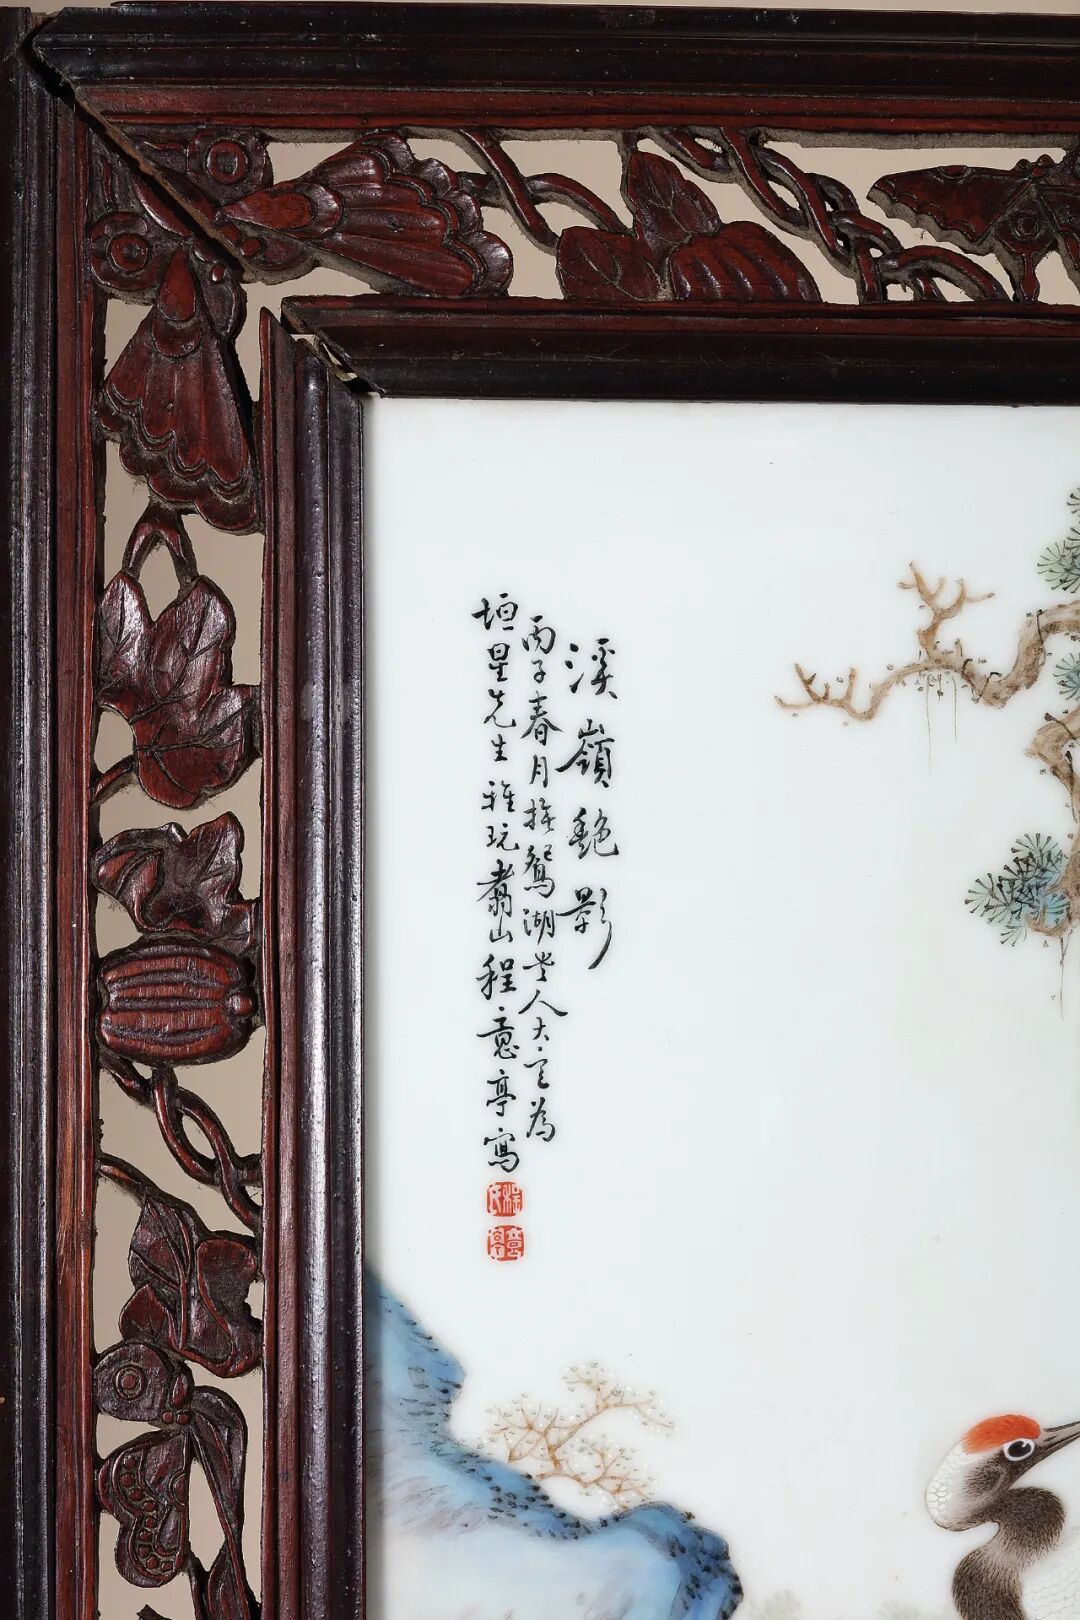 溪嶺艷影
丙子春月撫鴛湖老人大意為
垣星先生雅玩翥山程意亭寫
程 意亭